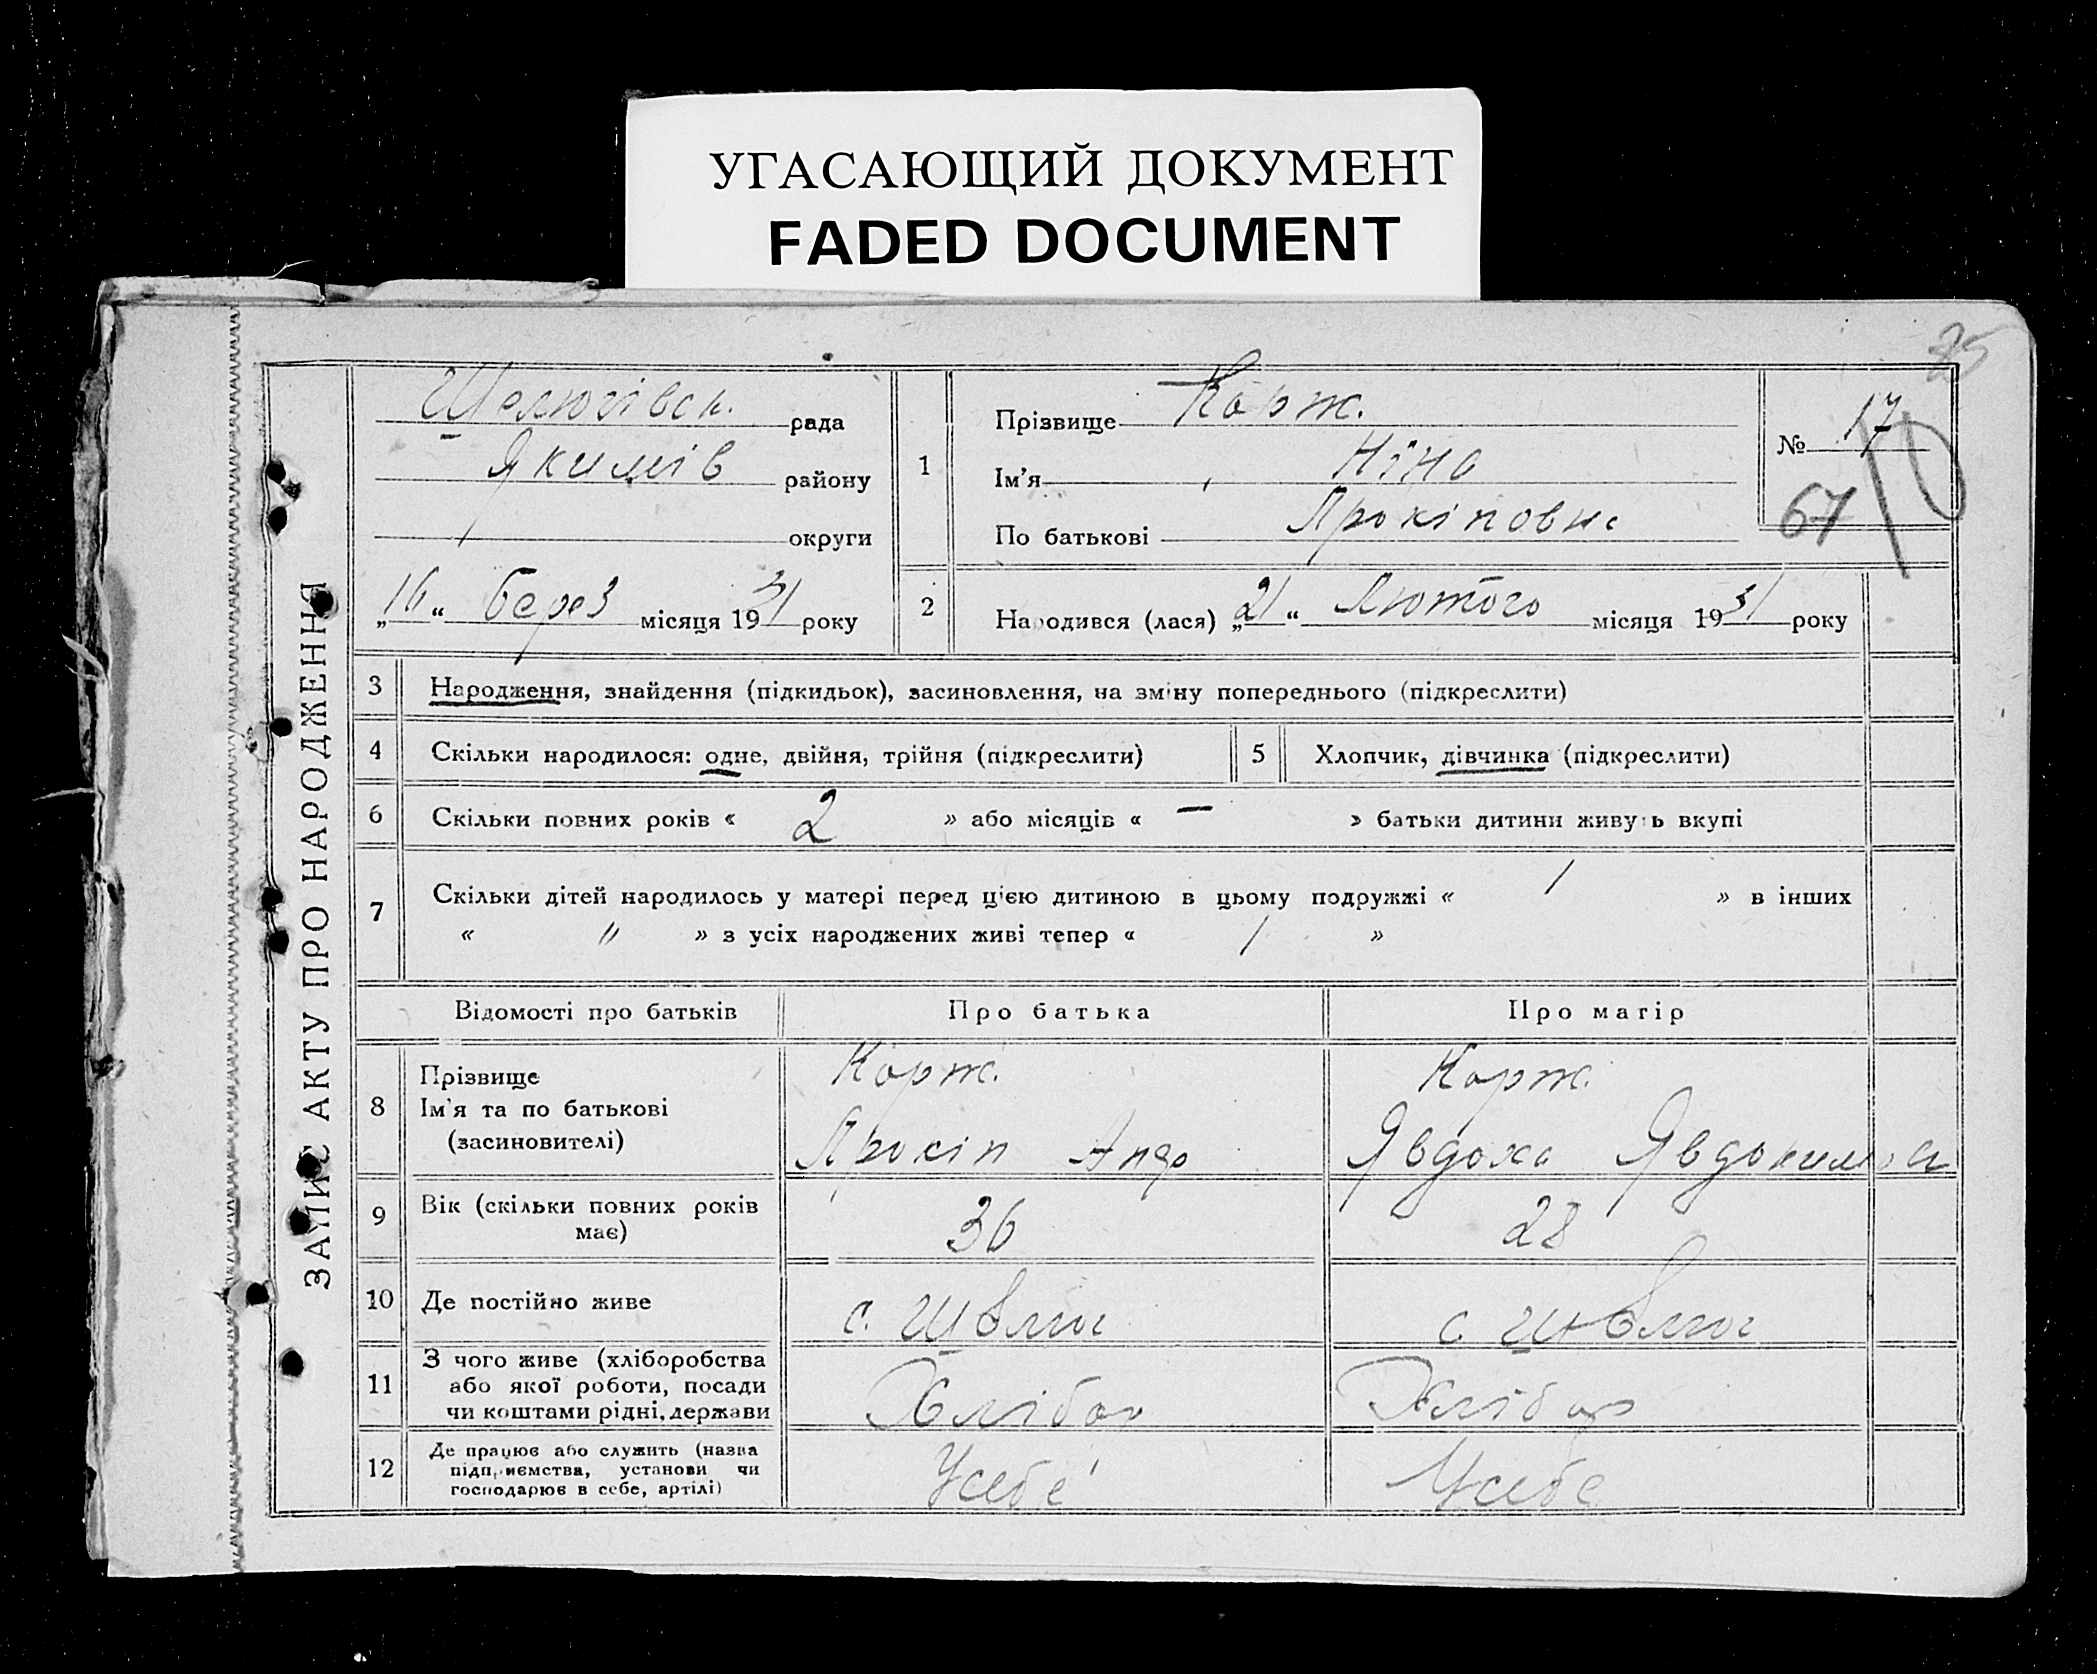 УГАСАЮЩИЙ ДОКУМЕНТ
FADED DOCUMENT
ЗАПИС АКТУ ПРО НАРОДЖЕННЯ
25
Шелюгівск. рада
Якимів району
округи
„16“ берез місяця 1931 року
1
Прізвище Корж.
Ім'я Ніна
По батькові Прокіповна
№ 17
67
10
2
Народився (лася) „21“ Лютого місяця 1931 року
3 Народження, знайдення (підкидьок), засиновлення, на зміну попереднього (підкреслити)
4 Скільки народилося: одне, двійня, трійня (підкреслити)
5 Хлопчик, дівчинка (підкреслити)
6 Скільки повних років « 2 » або місяців « — » батьки дитини живуть вкупі
7 Скільки дітей народилось у матері перед цією дитиною в цьому подружжі « 1 » в інших
« // » з усіх народжених живі тепер « 1 »
Відомості про батьків Про батька Про матір
8 Прізвище Корж. Корж.
Ім'я та по батькові
(засиновителі) Прокіп Андр Явдоха Явдокимов
9 Вік (скільки повних років має) 36 28
10 Де постійно живе с. Шелюг с. Шелюг
11 З чого живе (хліборобства
або якої роботи, посади
чи коштами рідні, держави Хлібор Хлібор
12 Де працює або служить (назва
підприємства, установи чи
господарює в себе, артілі) Усебе Усебе